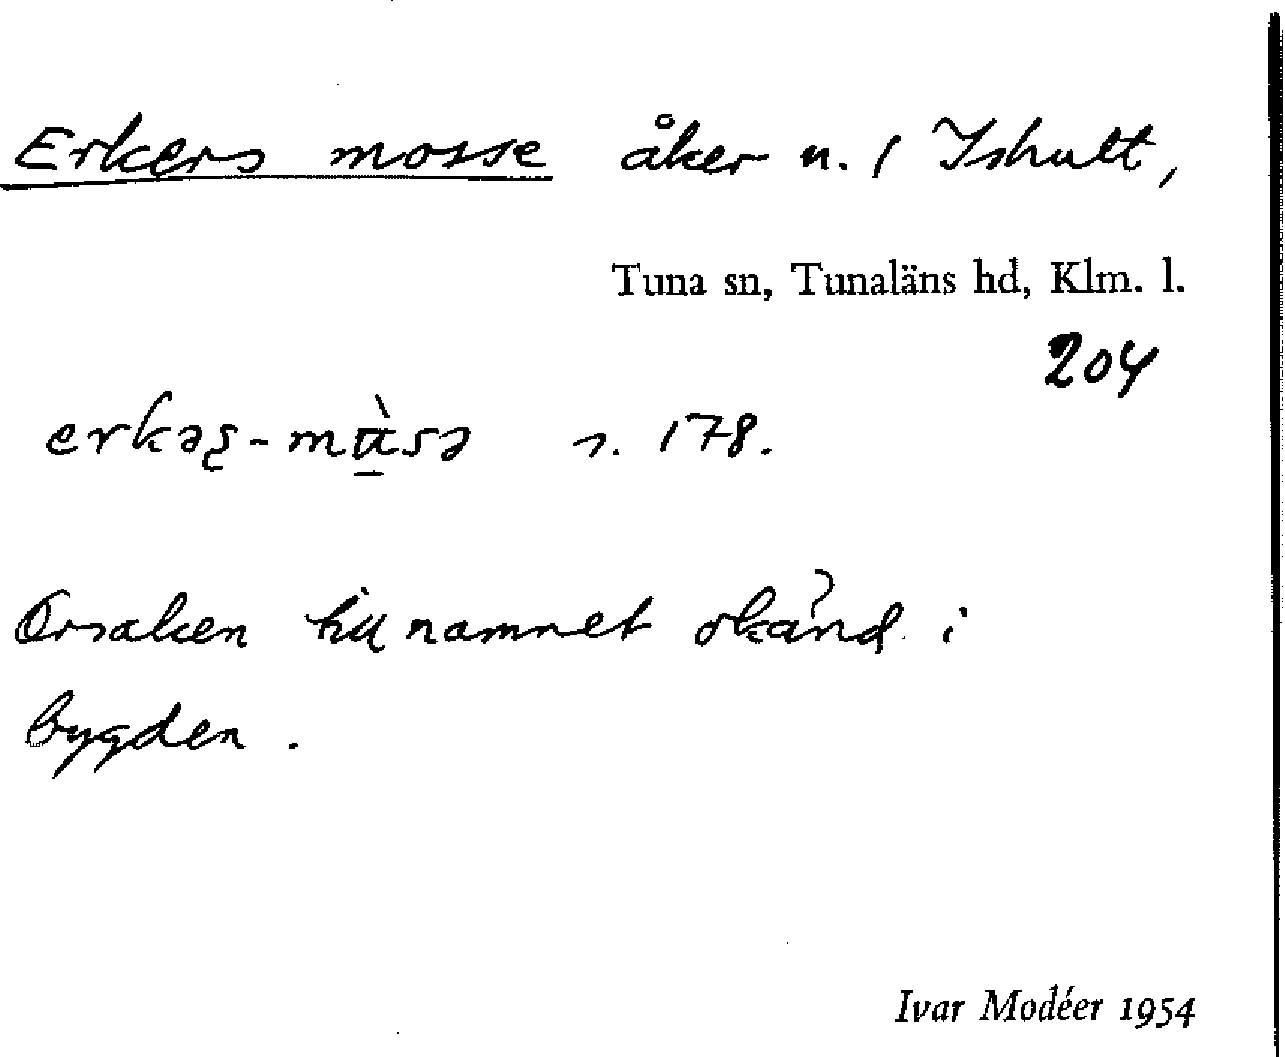 Erkers mosse åker n. / Ishult,
Tuna sn, Tunaläns hd, Klm. l.
204
erkəs̨-mὰsə s. 178.
Orsaken till namnet okänd i
bygden.
Ivar Modéer 1954